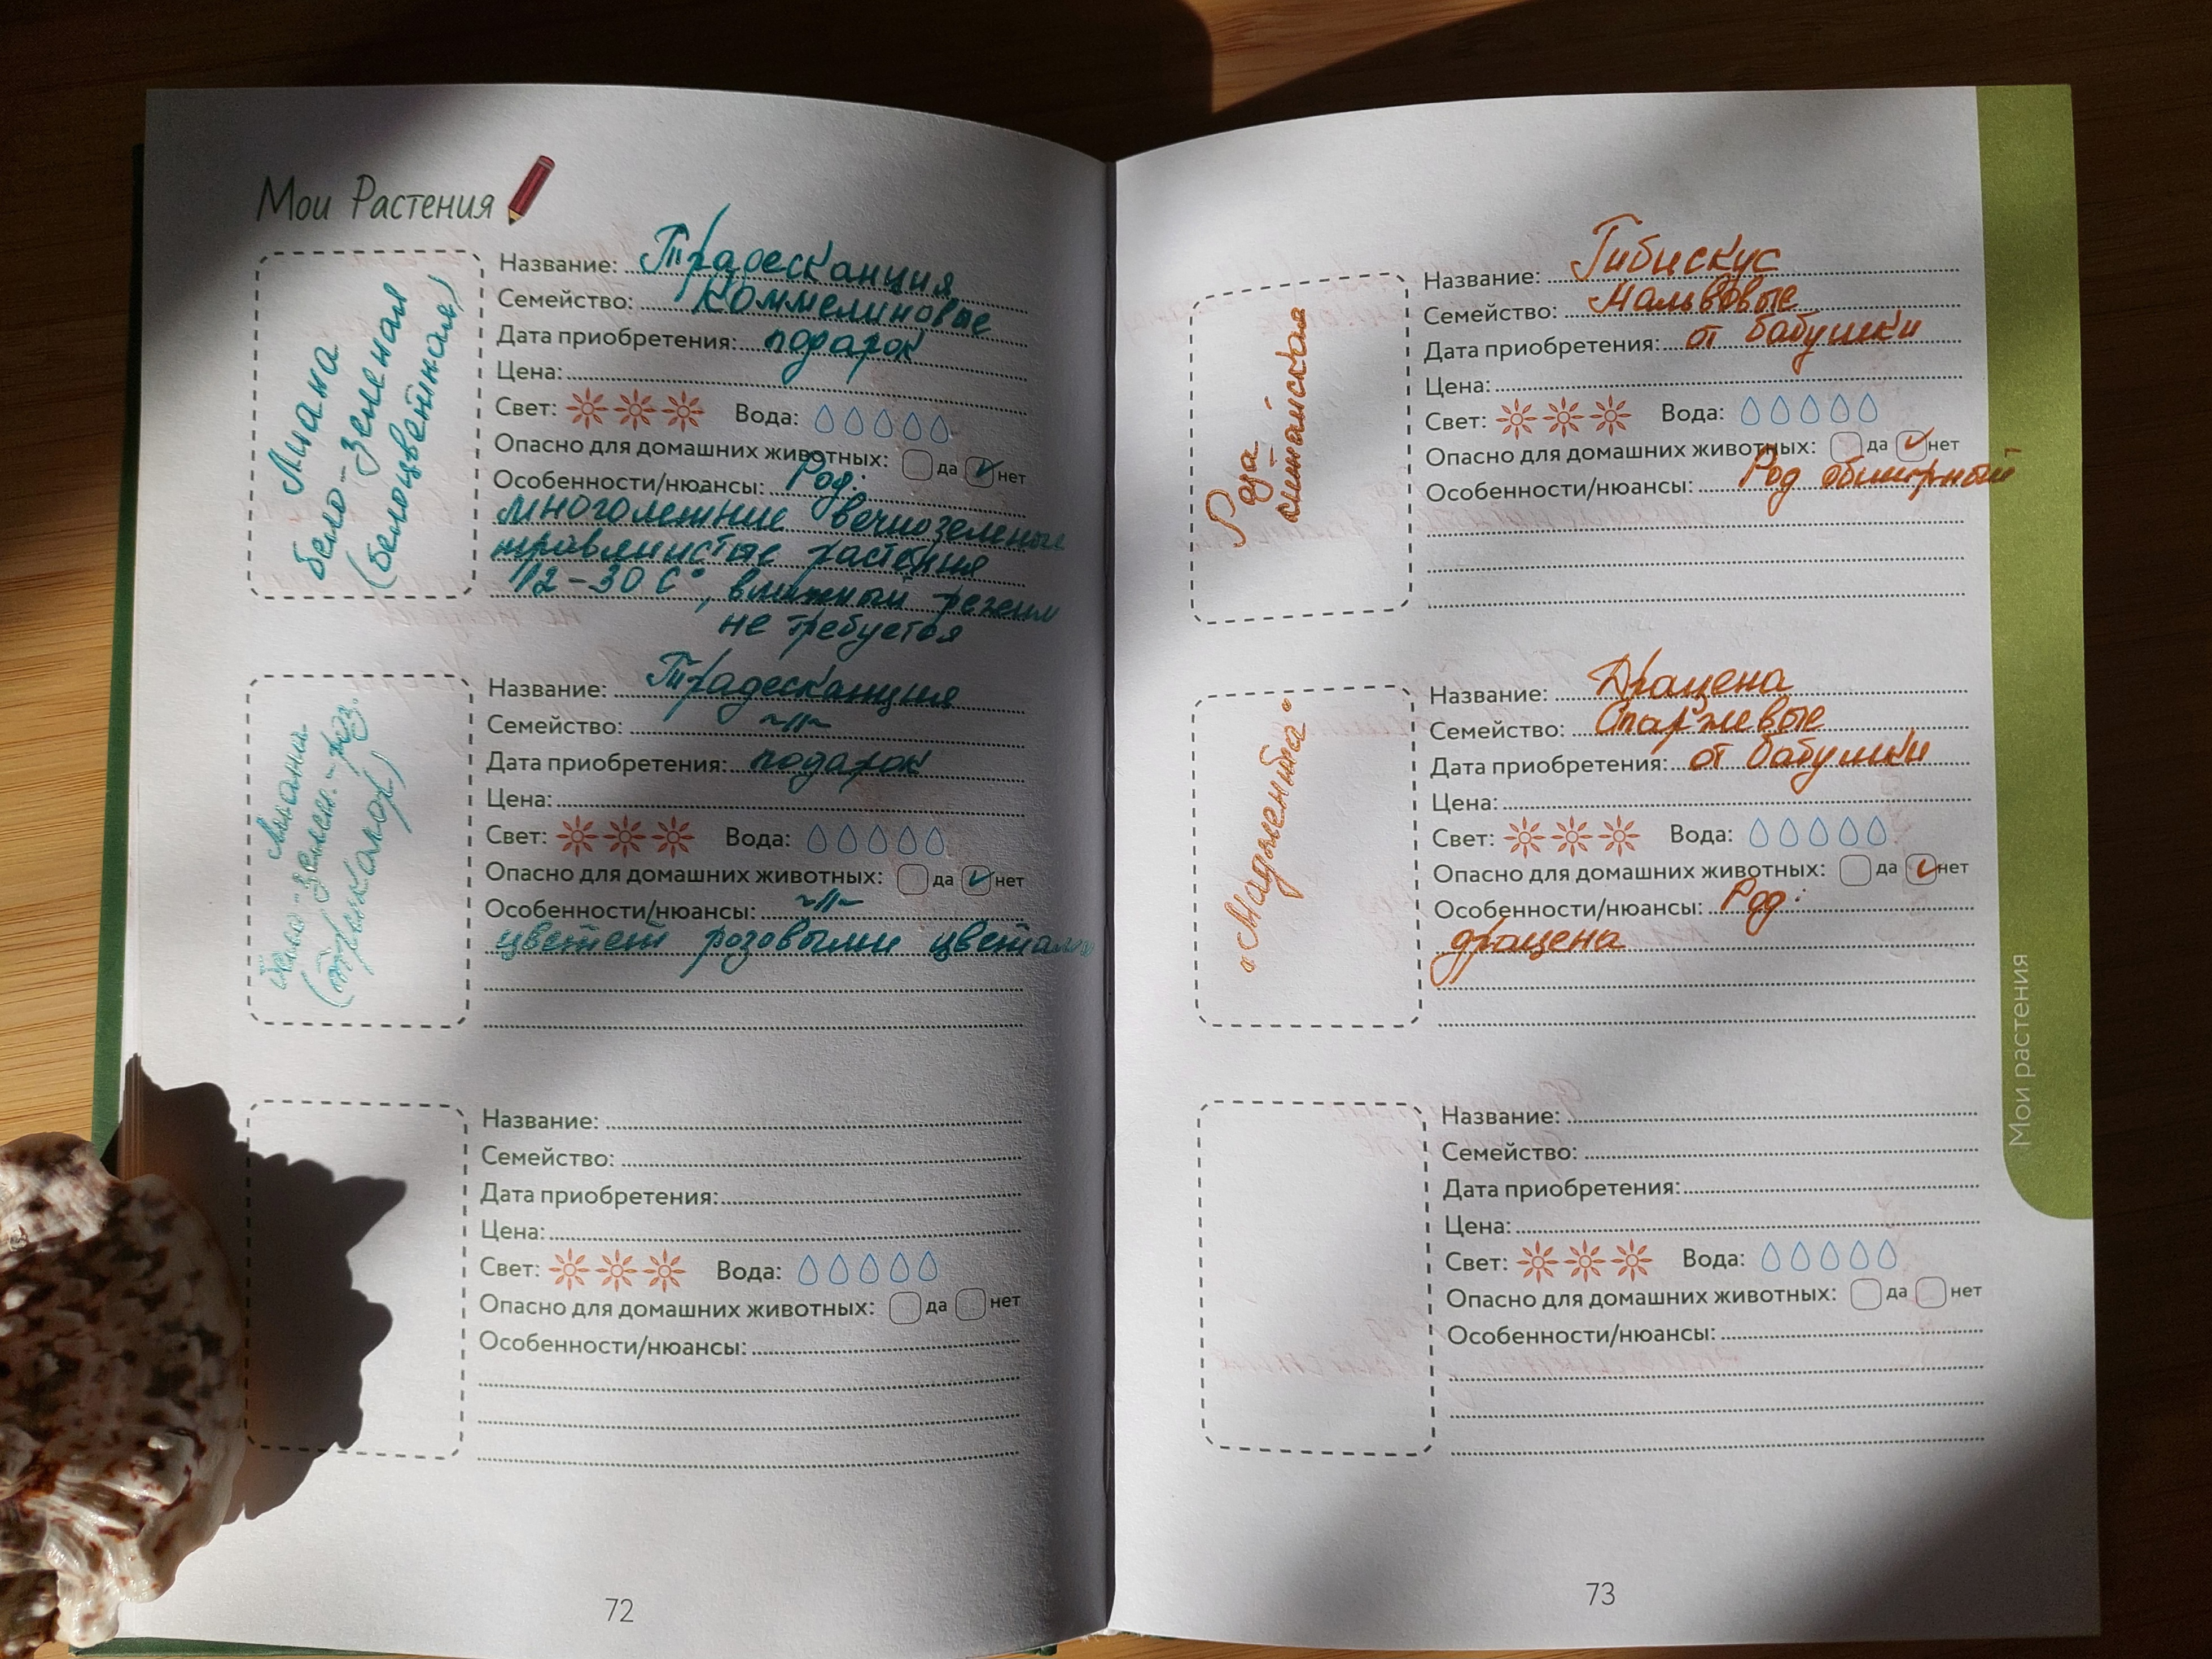 Мои Растения
Лиана
бело-зеленая
(белоцветная)
Название: Традесканция
Семейство: Коммелиновые
Дата приобретения: подарок
Цена:
Свет: Вода:
Опасно для домашних животных: да нет
Особенности/нюансы: Род:
многолетние вечнозеленые
травянистые растения
12-30 С°, влажный режим
не требуется
Лиана
бело-зелен.-роз.
(триколор)
Название: Традесканция
Семейство: ~//~
Дата приобретения: подарок
Цена:
Свет: Вода:
Опасно для домашних животных: да нет
Особенности/нюансы: ~//~
цветет розовыми цветами
Название:
Семейство:
Дата приобретения:
Цена:
Свет: Вода:
Опасно для домашних животных: да нет
Особенности/нюансы:
72
Роза
китайская
Название: Гибискус
Семейство: Мальвовые
Дата приобретения: от бабушки
Цена:
Свет: Вода:
Опасно для домашних животных: да нет
Особенности/нюансы: Род обширный
"Маджента"
Название: Драцена
Семейство: Спаржевые
Дата приобретения: от бабушки
Цена:
Свет: Вода:
Опасно для домашних животных: да нет
Особенности/нюансы: Род:
драцена
Название:
Семейство:
Дата приобретения:
Цена:
Свет: Вода:
Опасно для домашних животных: да нет
Особенности/нюансы:
73
Мои растения